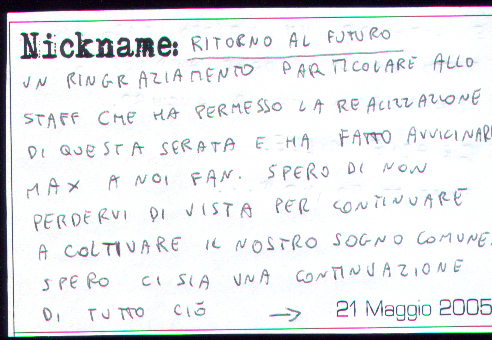 Nickname: RITORNO AL FUTURO
UN RINGRAZIAMENTO PARTICOLARE ALLO
STAFF CHE HA PERMESSO LA REALIZZAZIONE
DI QUESTA SERATA E HA FATTO AVVICINARE
MAX A NOI FAN. SPERO DI NON
PERDERVI DI VISTA PER CONTINUARE
A COLTIVARE IL NOSTRO SOGNO COMUNE.
SPERO CI SIA UNA CONTINUAZIONE
DI TUTTO CIÒ → 21 Maggio 2005